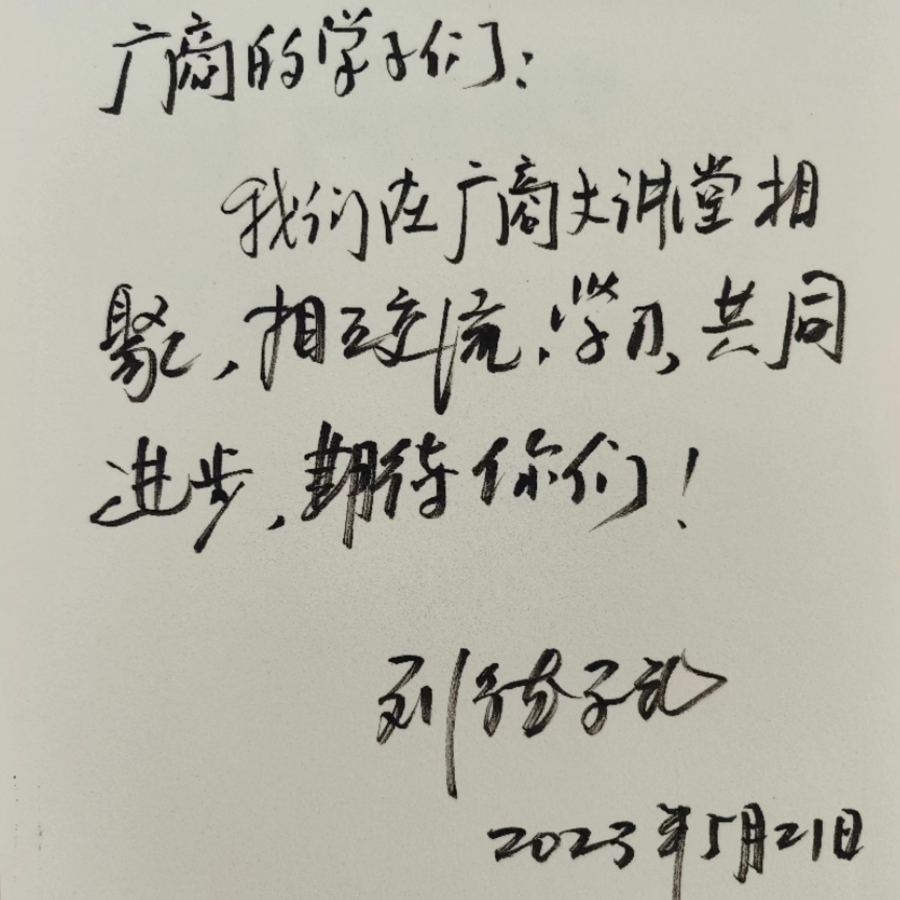 广商的学子们：
我们在广商大讲堂相
聚，相互交流，学习，共同
进步，期待你们！
刘
2023年5月21日